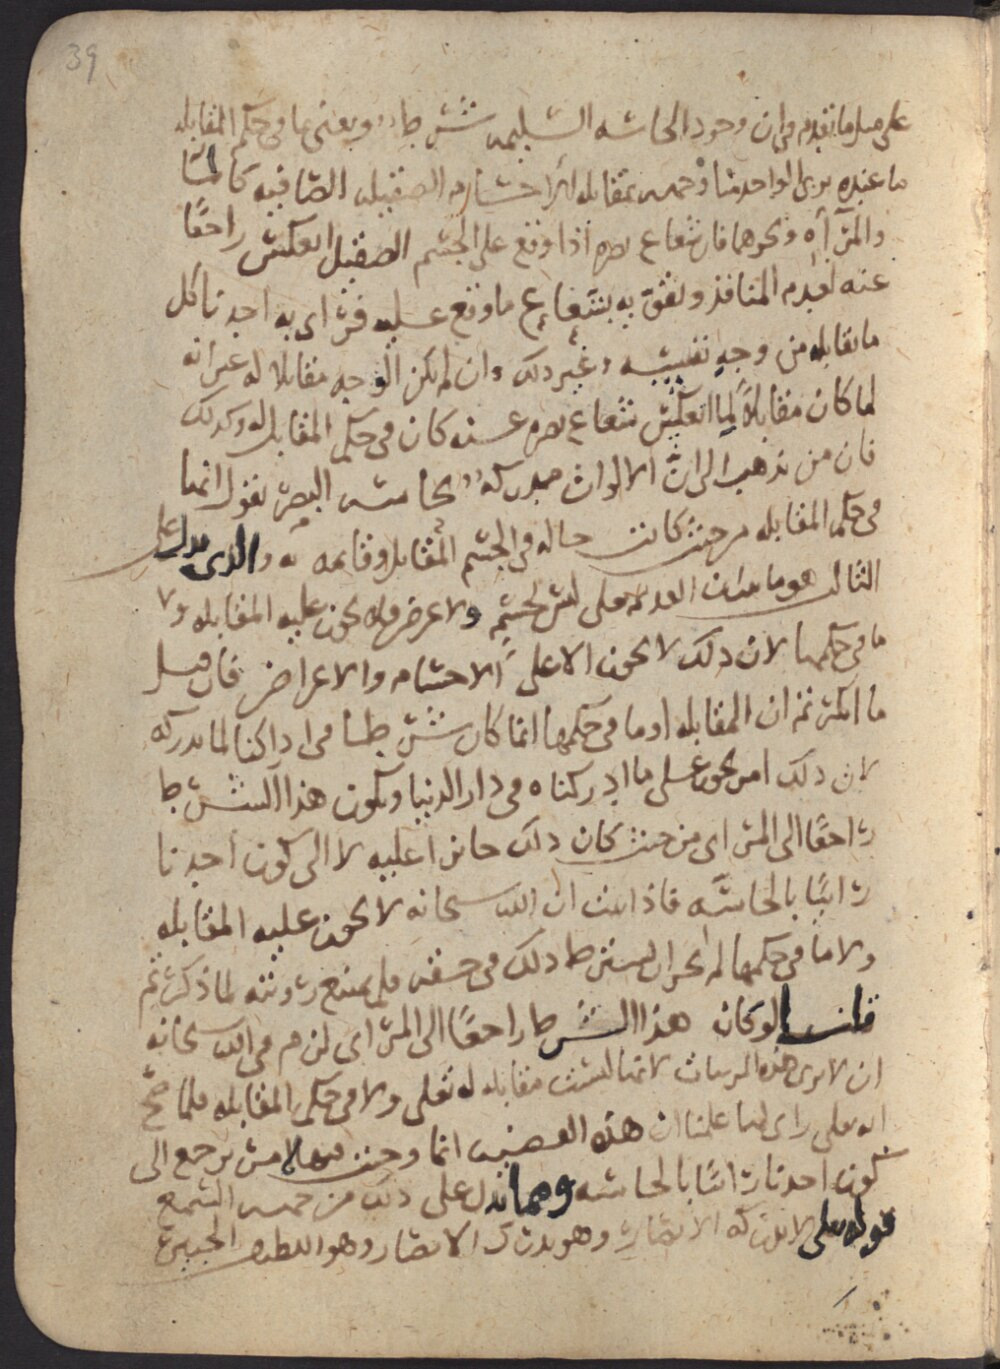 39
على مثل ما تقدم في ان وجود الحاسه السليمه شرط ونعني بما في حكم المقابله
ما عنده يرى الواحد منا وجهه بمقابله الاجسام الصقيله الصافيه كالما
والمرآه ونحوهما فان شعاع بصره اذا وقع على الجسم الصقيل انعكس راجعًا
عنه لعدم المنافذ ولحق به بشعاع ما وقع عليه فرأى به احدنا كل
ما يقابله من وجه نفسه وغير ذلك وان لم يكن الوجه مقابلا له غير انه
لما كان مقابلاً لما انعكس شعاع بصره عنه كان في حكم المقابل له وكذلك
فان من يذهب الى ان الالوان مدركه بحاسه البصر يقول انها
في حكم المقابله من حيث كانت حاله في الجسم المقابل وقائمه به والذي يدل على
الثاني هو ما من ان القديم تعالى ليس بجسم ولا عرض فلا يجوز عليه المقابله ولا
ما في حكمها لان ذلك لا يجوز الا على الاجسام والاعراض فان قيل
ما انكرتم ان المقابله او ما في حكمها انما كان شرطا في ادراكنا لما ندركه
لان ذلك امر يجوز على ما ادركناه في دار الدنيا ويكون هذا الشرط
راجعًا الى المرأى من حيث كان ذلك جائزا عليه لا الى كون احدنا
رائيًا بالحاسه فاذا ثبت ان الله سبحانه لا يجوز عليه المقابله
ولا ما في حكمها لم يجز ان يشترط ذلك في حقه فلم يمنع رؤيته لما ذكرتم
قلنا لو كان هذا الشرط راجعًا الى المرأى لزم في الله سبحانه
ان لا يرى هذه المرئيات لانها ليست مقابله له تعلى ولا في حكم المقابله فلما صح
انه تعلى راى لها علمنا ان هذه القضيه انما وجبت فيها لامر يرجع الى
كون احدنا رائيًا بالحاسه ومما يدل على ذلك من جهه السمع
قوله تعلى لا تدركه الابصار وهو يدرك الابصار وهو اللطيف الخبير